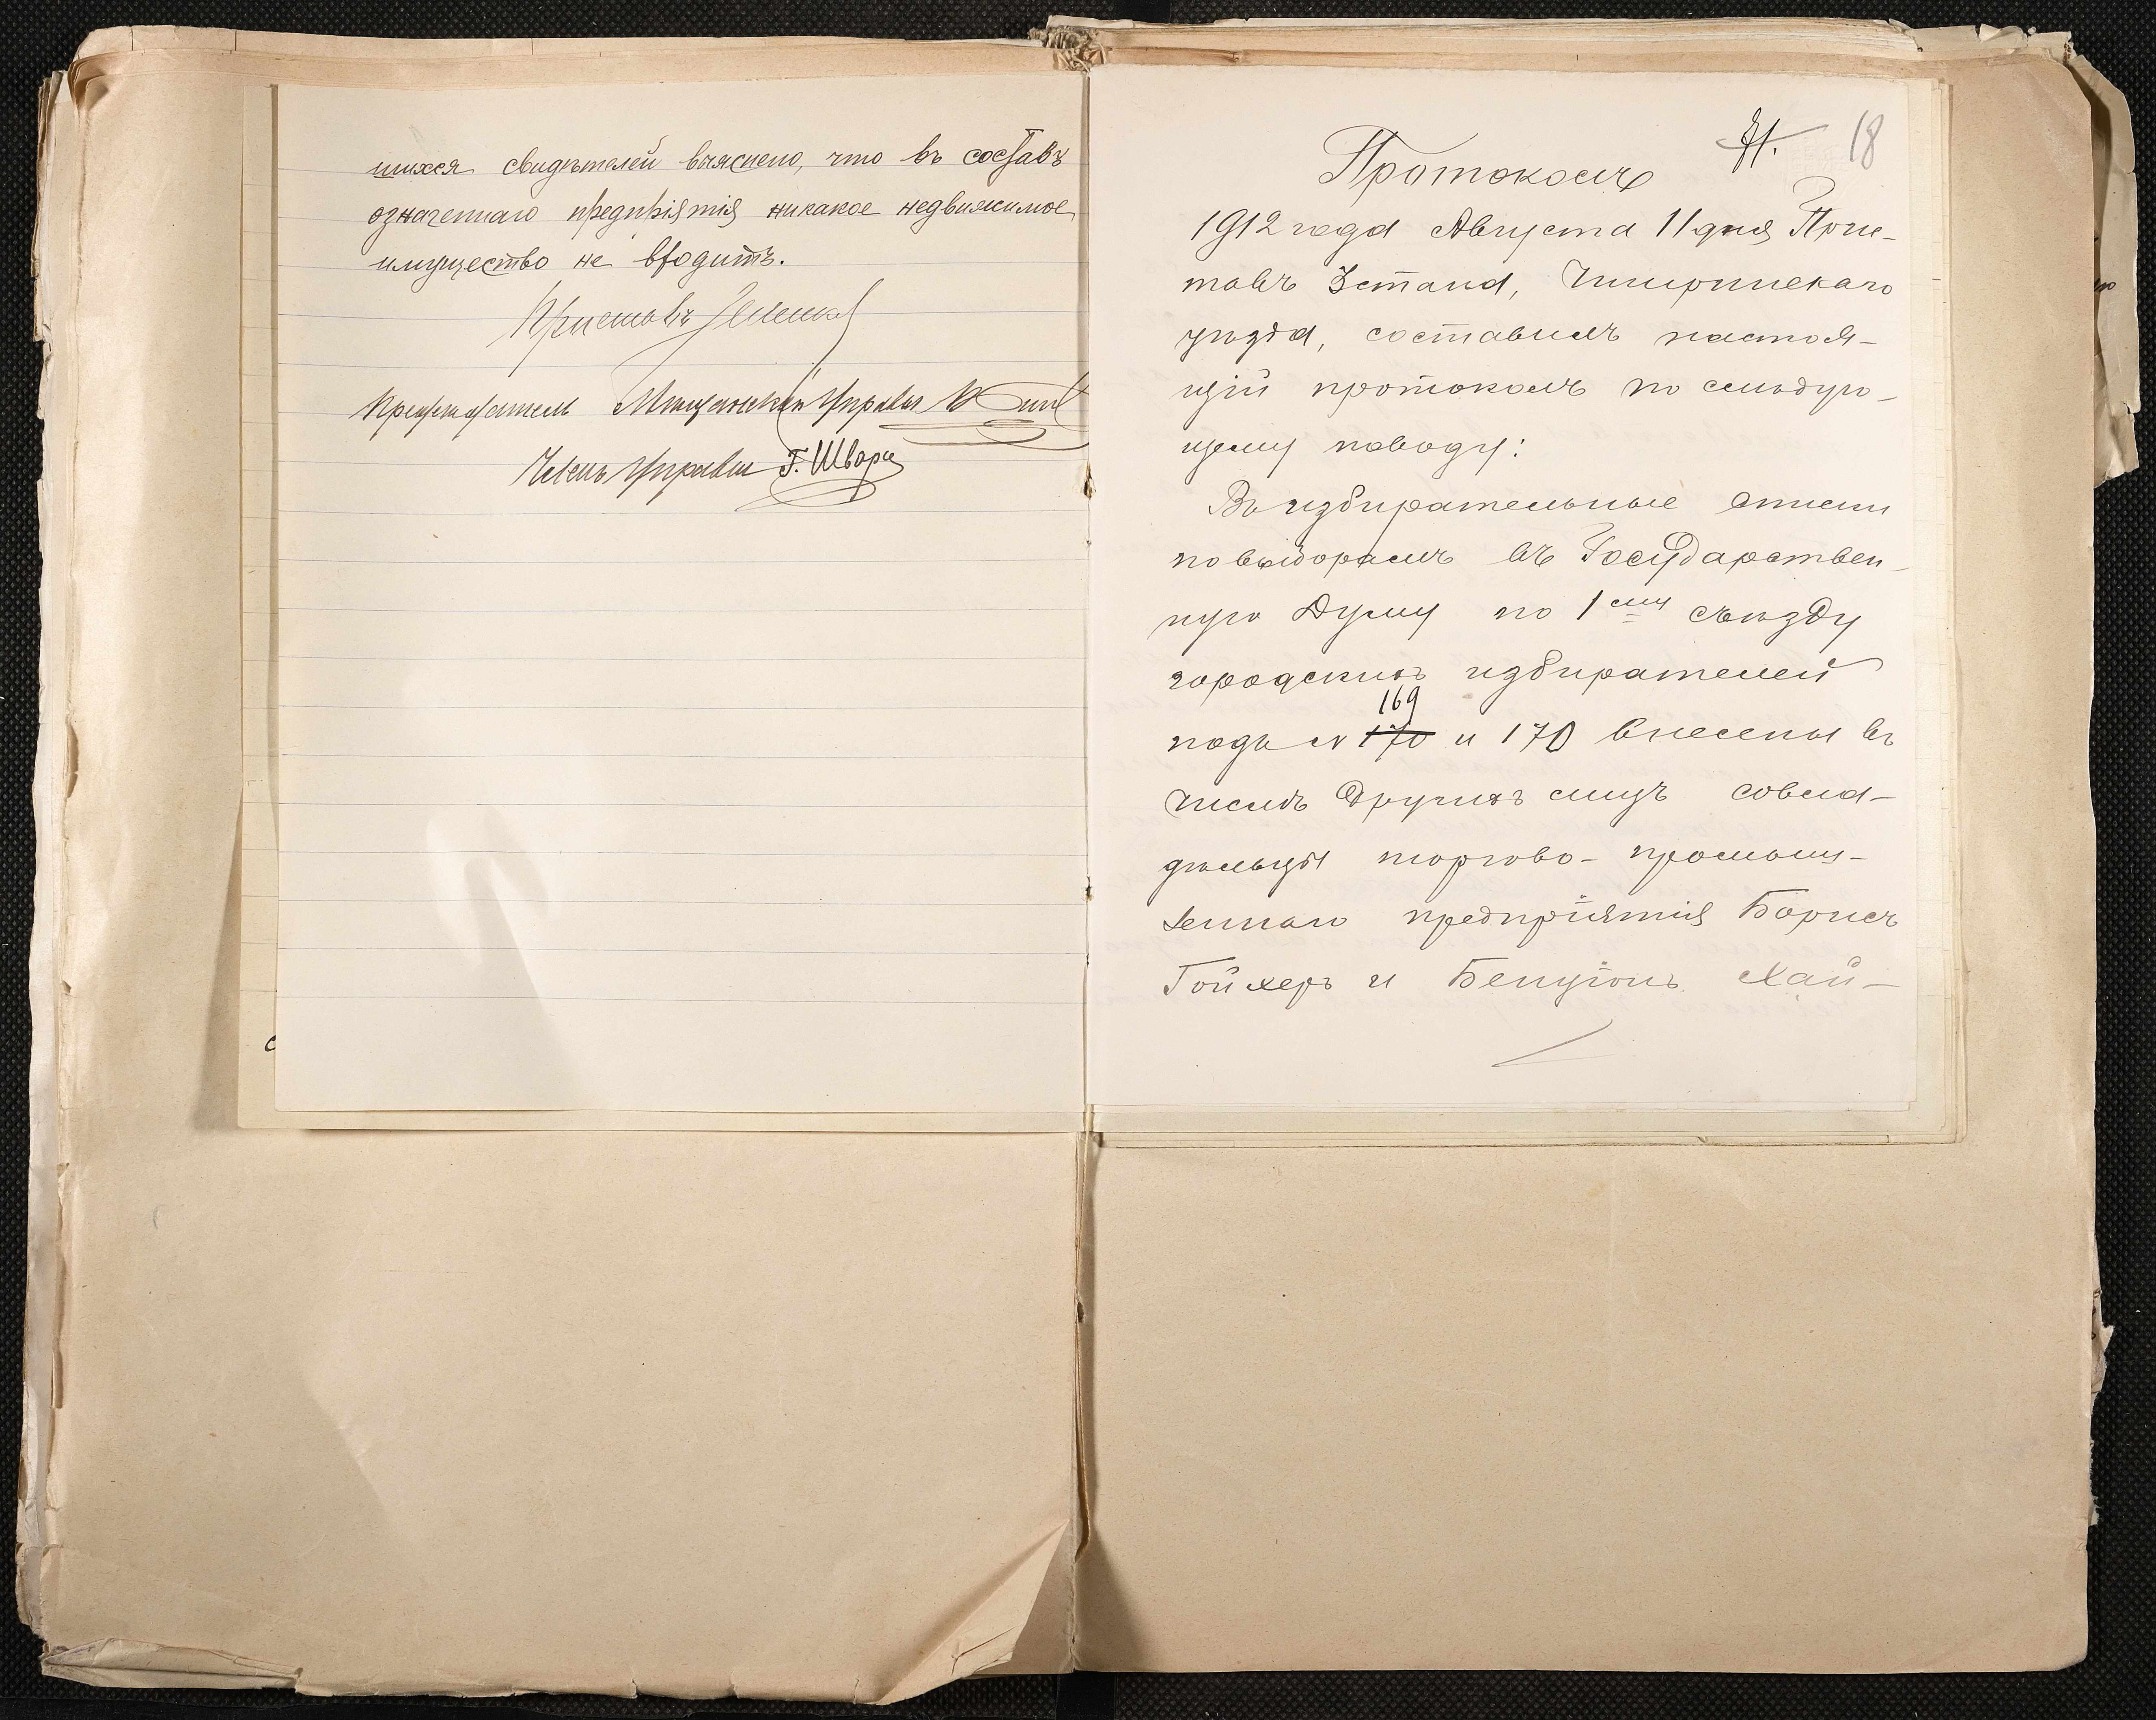 шихся свидѣтелей выяснено, что въ составъ
означеннаго предпріятія никакое недвижимое
имущество не входитъ.
Приставъ
Предсѣдатель Мѣщанской Управы
Членъ Управы Г. Шварц
18
Протоколъ
1912 года Августа 11 дня При-
ставъ 3 стана, Чигиринскаго
уѣзда, составилъ настоя-
щій протоколъ по слѣдую-
щему поводу:
Въ избирательные списки
по выборамъ въ Государствен-
ную Думу по 1му съѣзду
городскихъ избирателей
подъ № 170 169 и 170 внесены въ
числѣ другихъ лицъ совла-
дѣльцы торгово-промыш-
леннаго предпріятія Борисъ
Гойхеръ и Бенціонъ Хай-